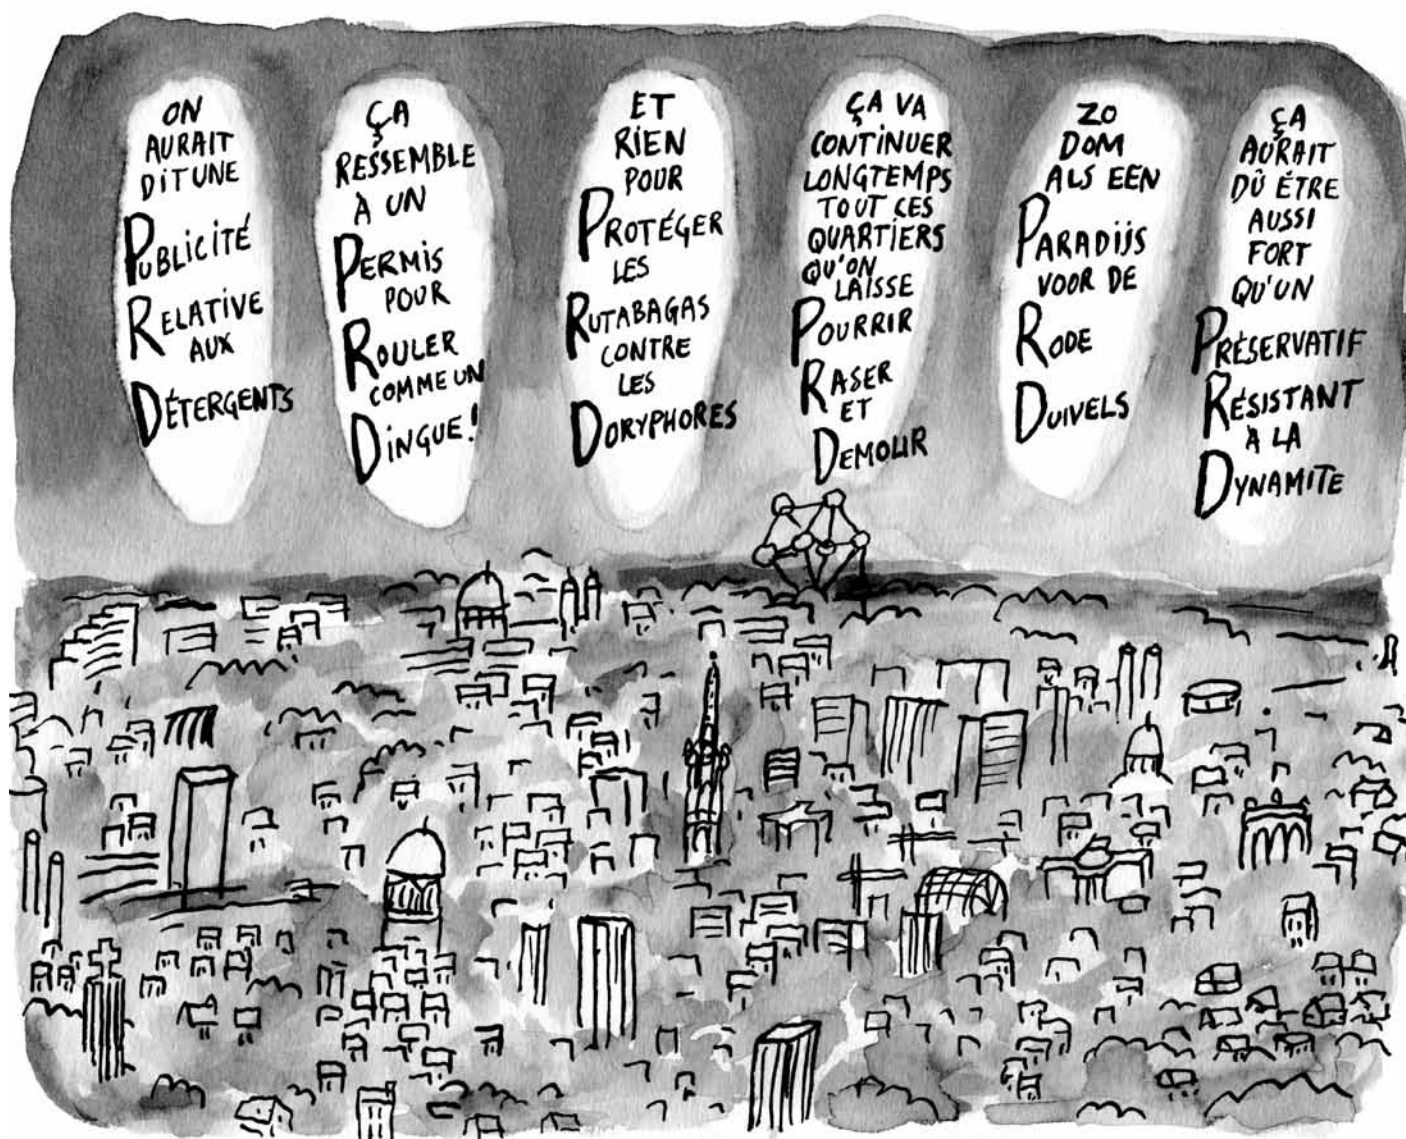 ON
AURAIT
DIT UNE
PUBLICITÉ
RELATIVE
AUX
DÉTERGENTS
ÇA
RESSEMBLE
À UN
PERMIS
POUR
ROULER
COMME UN
DINGUE!
ET
RIEN
POUR
PROTÉGER
LES
RUTABAGAS
CONTRE
LES
DORYPHORES
ÇA VA
CONTINUER
LONGTEMPS
TOUT CES
QUARTIERS
QU'ON
LAISSE
POURRIR
RASER
ET
DEMOLIR
ZO
DOM
ALS EEN
PARADIJS
VOOR DE
RODE
DUIVELS
ÇA
AURAIT
DÛ ÊTRE
AUSSI
FORT
QU'UN
PRÉSERVATIF
RÉSISTANT
À LA
DYNAMITE